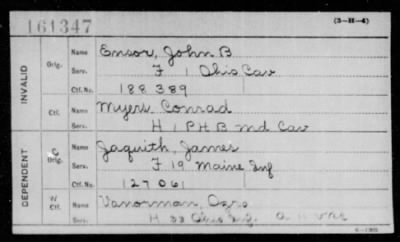 161347
(3-H-4)
INVALID
Orig.
Name Ensor, John B
Serv. F 1 Ohio Cav
Ctf. No. 188389
Ctf.
Name Myers Conrad
Serv. H 1 P H B Md Cav
DEPENDENT
C
Orig.
Name Jaquith, James
Serv. F 19 Maine Inf
Ctf. No. 127061
W
Ctf.
Name Vanorman,
Serv. H 33 Ohio Inf. A 11 VRC
6-1303